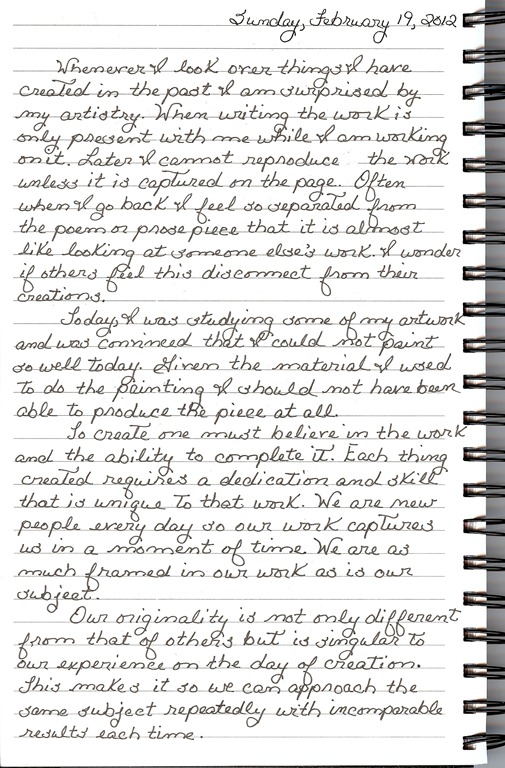 Sunday, February 19, 2012
Whenever I look over things I have
created in the past I am surprised by
my artistry. When writing the work is
only present with me while I am working
on it. Later I cannot reproduce the work
unless it is captured on the page. Often
when I go back I feel so separated from
the poem or prose piece that it is almost
like looking at someone else's work. I wonder
if others feel this disconnect from their
creations.
Today, I was studying some of my artwork
and was convinced that I could not paint
so well today. Given the material I used
to do the painting I should not have been
able to produce the piece at all.
To create one must believe in the work
and the ability to complete it. Each thing
created requires a dedication and skill
that is unique to that work. We are new
people every day so our work captures
us in a moment of time. We are as
much framed in our work as is our
subject.
Our originality is not only different
from that of others but is singular to
our experience on the day of creation.
This makes it so we can approach the
same subject repeatedly with incomparable
results each time.